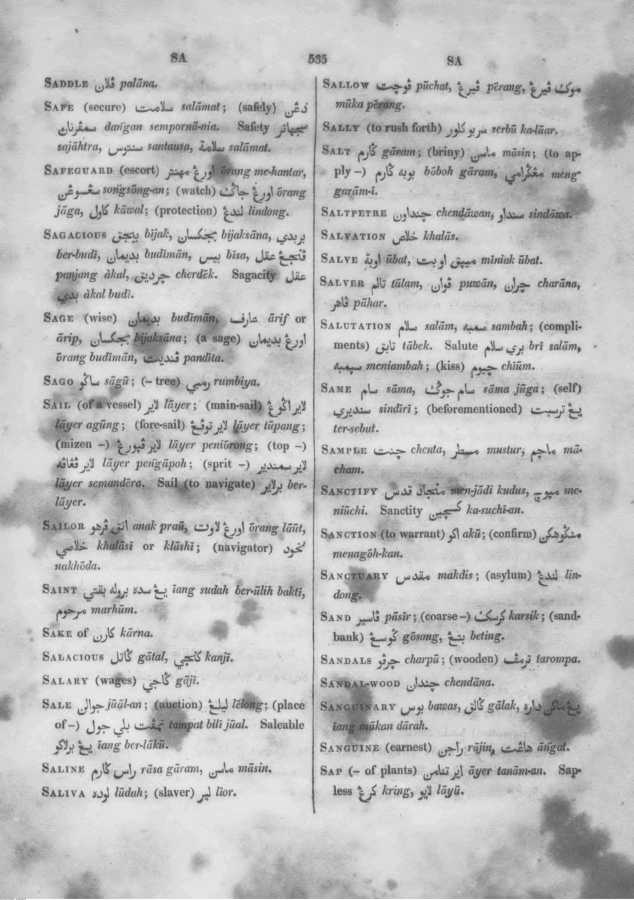 SA
535
SA
SADDLE ڤلان palāna.
SAFE (secure) سلامت salāmat; (safely) دغن
سمڤرنان dangan sempornā-nia. Safety سجهاتر
sajāhtra, سنتوس santausa, سلامة salāmat.
SAFEGUARD (escort) اورڠ مهنتر ōrang me-hantar,
سڠسوڠن songsōng-an; (watch) اورڠ جاݢ ōrang
jāga, كاول kāwal; (protection) لندڠ lindong.
SAGACIOUS بيجق bijak, بجكسان bijaksāna, بربدي
ber-budi, بديمان budimān, بيس bisa, ڤنجڠ عقل
panjang ākal, چرديق cherdēk. Sagacity عقل
بدي ākal budi.
SAGE (wise) بديمان budimān, عارف ārif or
ārip, بجكسان bijaksāna; (a sage) اورڠ بديمان
ōrang budimān, ڤنديت pandita.
SAGO ساڬو sāgū; (– tree) رمبي rumbiya.
SAIL (of a vessel) لاير lāyer; (main-sail) لاير اڬوڠ
lāyer agūng; (fore-sail) لاير توڤڠ lāyer tūpang;
(mizen –) لاير ڤڽورڠ lāyer peniōrong; (top –)
لاير ڤڠاڤه lāyer pengāpoh; (sprit –) لاير سمندير
lāyer semandēra. Sail (to navigate) برلاير ber-
lāyer.
SAILOR انق ڤراهو anak praū, اورڠ لاوت ōrang lāūt,
خلاصي khalāsi or klāshi; (navigator) نخود
nakhōda.
SAINT يڠ سده بروله بقتي īang sudah ber-ūlih bakti,
مرحوم marhūm.
SAKE of كارن kārna.
SALACIOUS ݢاتل gātal, كانجي kanji.
SALARY (wages) ݢاجي gāji.
SALE جوالن jūāl-an; (auction) ليلڠ lēlong; (place
of –) تمڤت بلي جول tampat bili jūal. Saleable
يڠ برلاكو īang ber-lākū.
SALINE راس ݢارم rāsa gāram, ماسن māsin.
SALIVA لوده lūdah; (slaver) لير līor.
SALLOW ڤوچت pūchat, ڤيرڠ pērang, موك ڤيرڠ
mūka pērang.
SALLY (to rush forth) سربو كلور serbū ka-lūar.
SALT ݢارم gāram; (briny) ماسن māsin; (to ap-
ply –) بوبه ݢارم bōboh gāram, مڠݢرامي meng-
garām-i.
SALTPETRE چنداون chendāwan, سنداو sindāwa.
SALVATION خلاص khalās.
SALVE اوبة ūbat, ميڽق اوبت miniak ūbat.
SALVER تالم tālam, ڤوان puwān, چران charāna,
ڤاهر pāhar.
SALUTATION سلام salām, سمبه sambah; (compli-
ments) تابق tābek. Salute بري سلام brī salām,
مڽمبه meniambah; (kiss) چيوم chīūm.
SAME سام sāma, سام جوݢ sāma jūga; (self)
سنديري sindiri; (beforementioned) يڠ ترسبت
ter-sebut.
SAMPLE چنت chenta, مسطر mustur, ماچم mā-
cham.
SANCTIFY منجادي قدس men-jādi kudus, مڽوچي me-
niūchi. Sanctity كسوچين ka-suchi-an.
SANCTION (to warrant) اكو akū; (confirm) منݢوهكن
menagōh-kan.
SANCTUARY مقدس makdis; (asylum) لندڠ lin-
dong.
SAND ڤاسير pāsir; (coarse –) كرسك karsik; (sand-
bank) ݢوسڠ gōsong, بتڠ beting.
SANDALS چرڤو charpū; (wooden) ترمڤ tarompa.
SANDAL-WOOD چندان chendāna.
SANGUINARY بوس bawas, ݢالق gālak, يڠ ماكن داره
īang mākan dārah.
SANGUINE (earnest) راجن rājin, هاڠت āngat.
SAP (– of plants) اير تنامن āyer tanām-an. Sap-
less كرڠ kring, لايو lāyū.